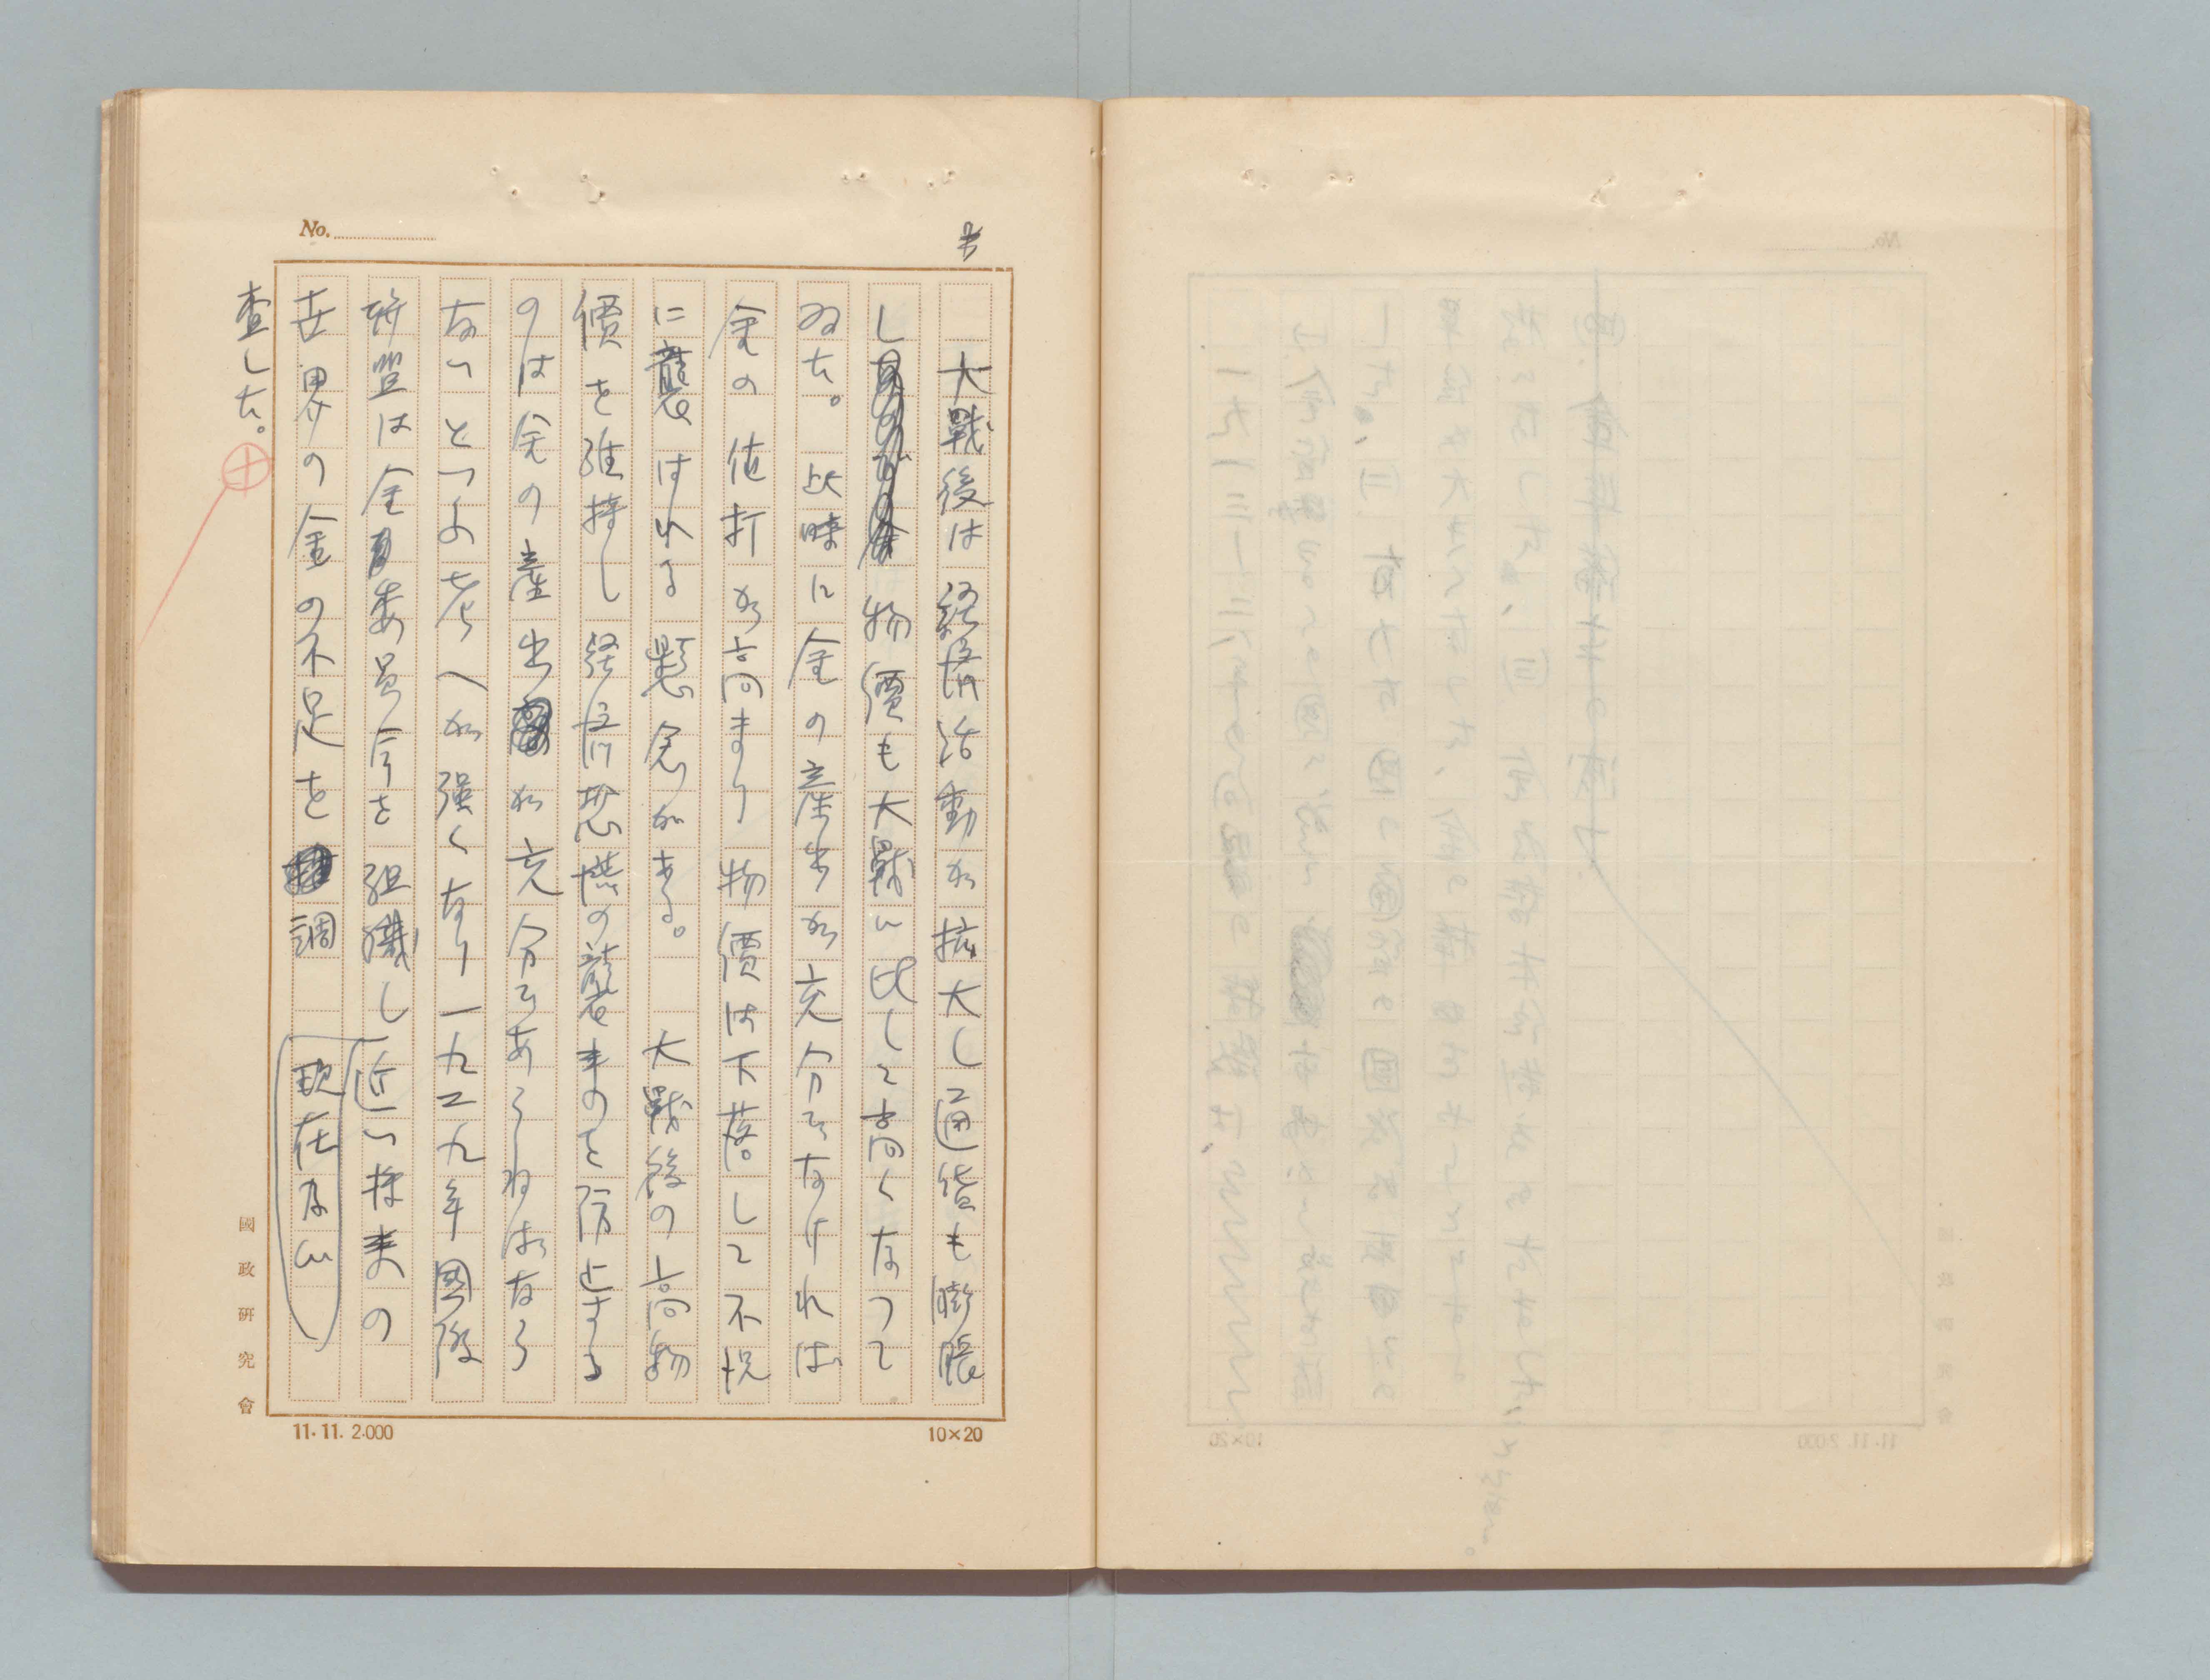 No.
大戰後は経済活動が拡大し通貨も膨脹
し物價も大戰に比して高くなつて
ゐた。此時に金の産出が充分でなければ
金の値打が高まり物價は下落して不況
に襲はれる懸念がある。大戰後の高物
價を維持し経済恐慌の襲来のを防止する
のは金の産出が充分であらねばなら
ないといつよ考へが強くなり一九二九年國際
聨盟は金委員会を組織し近い将来の
世界の金の不足を調(現在及び)
査した。
國政研究會
11.11. 2.000
10×20